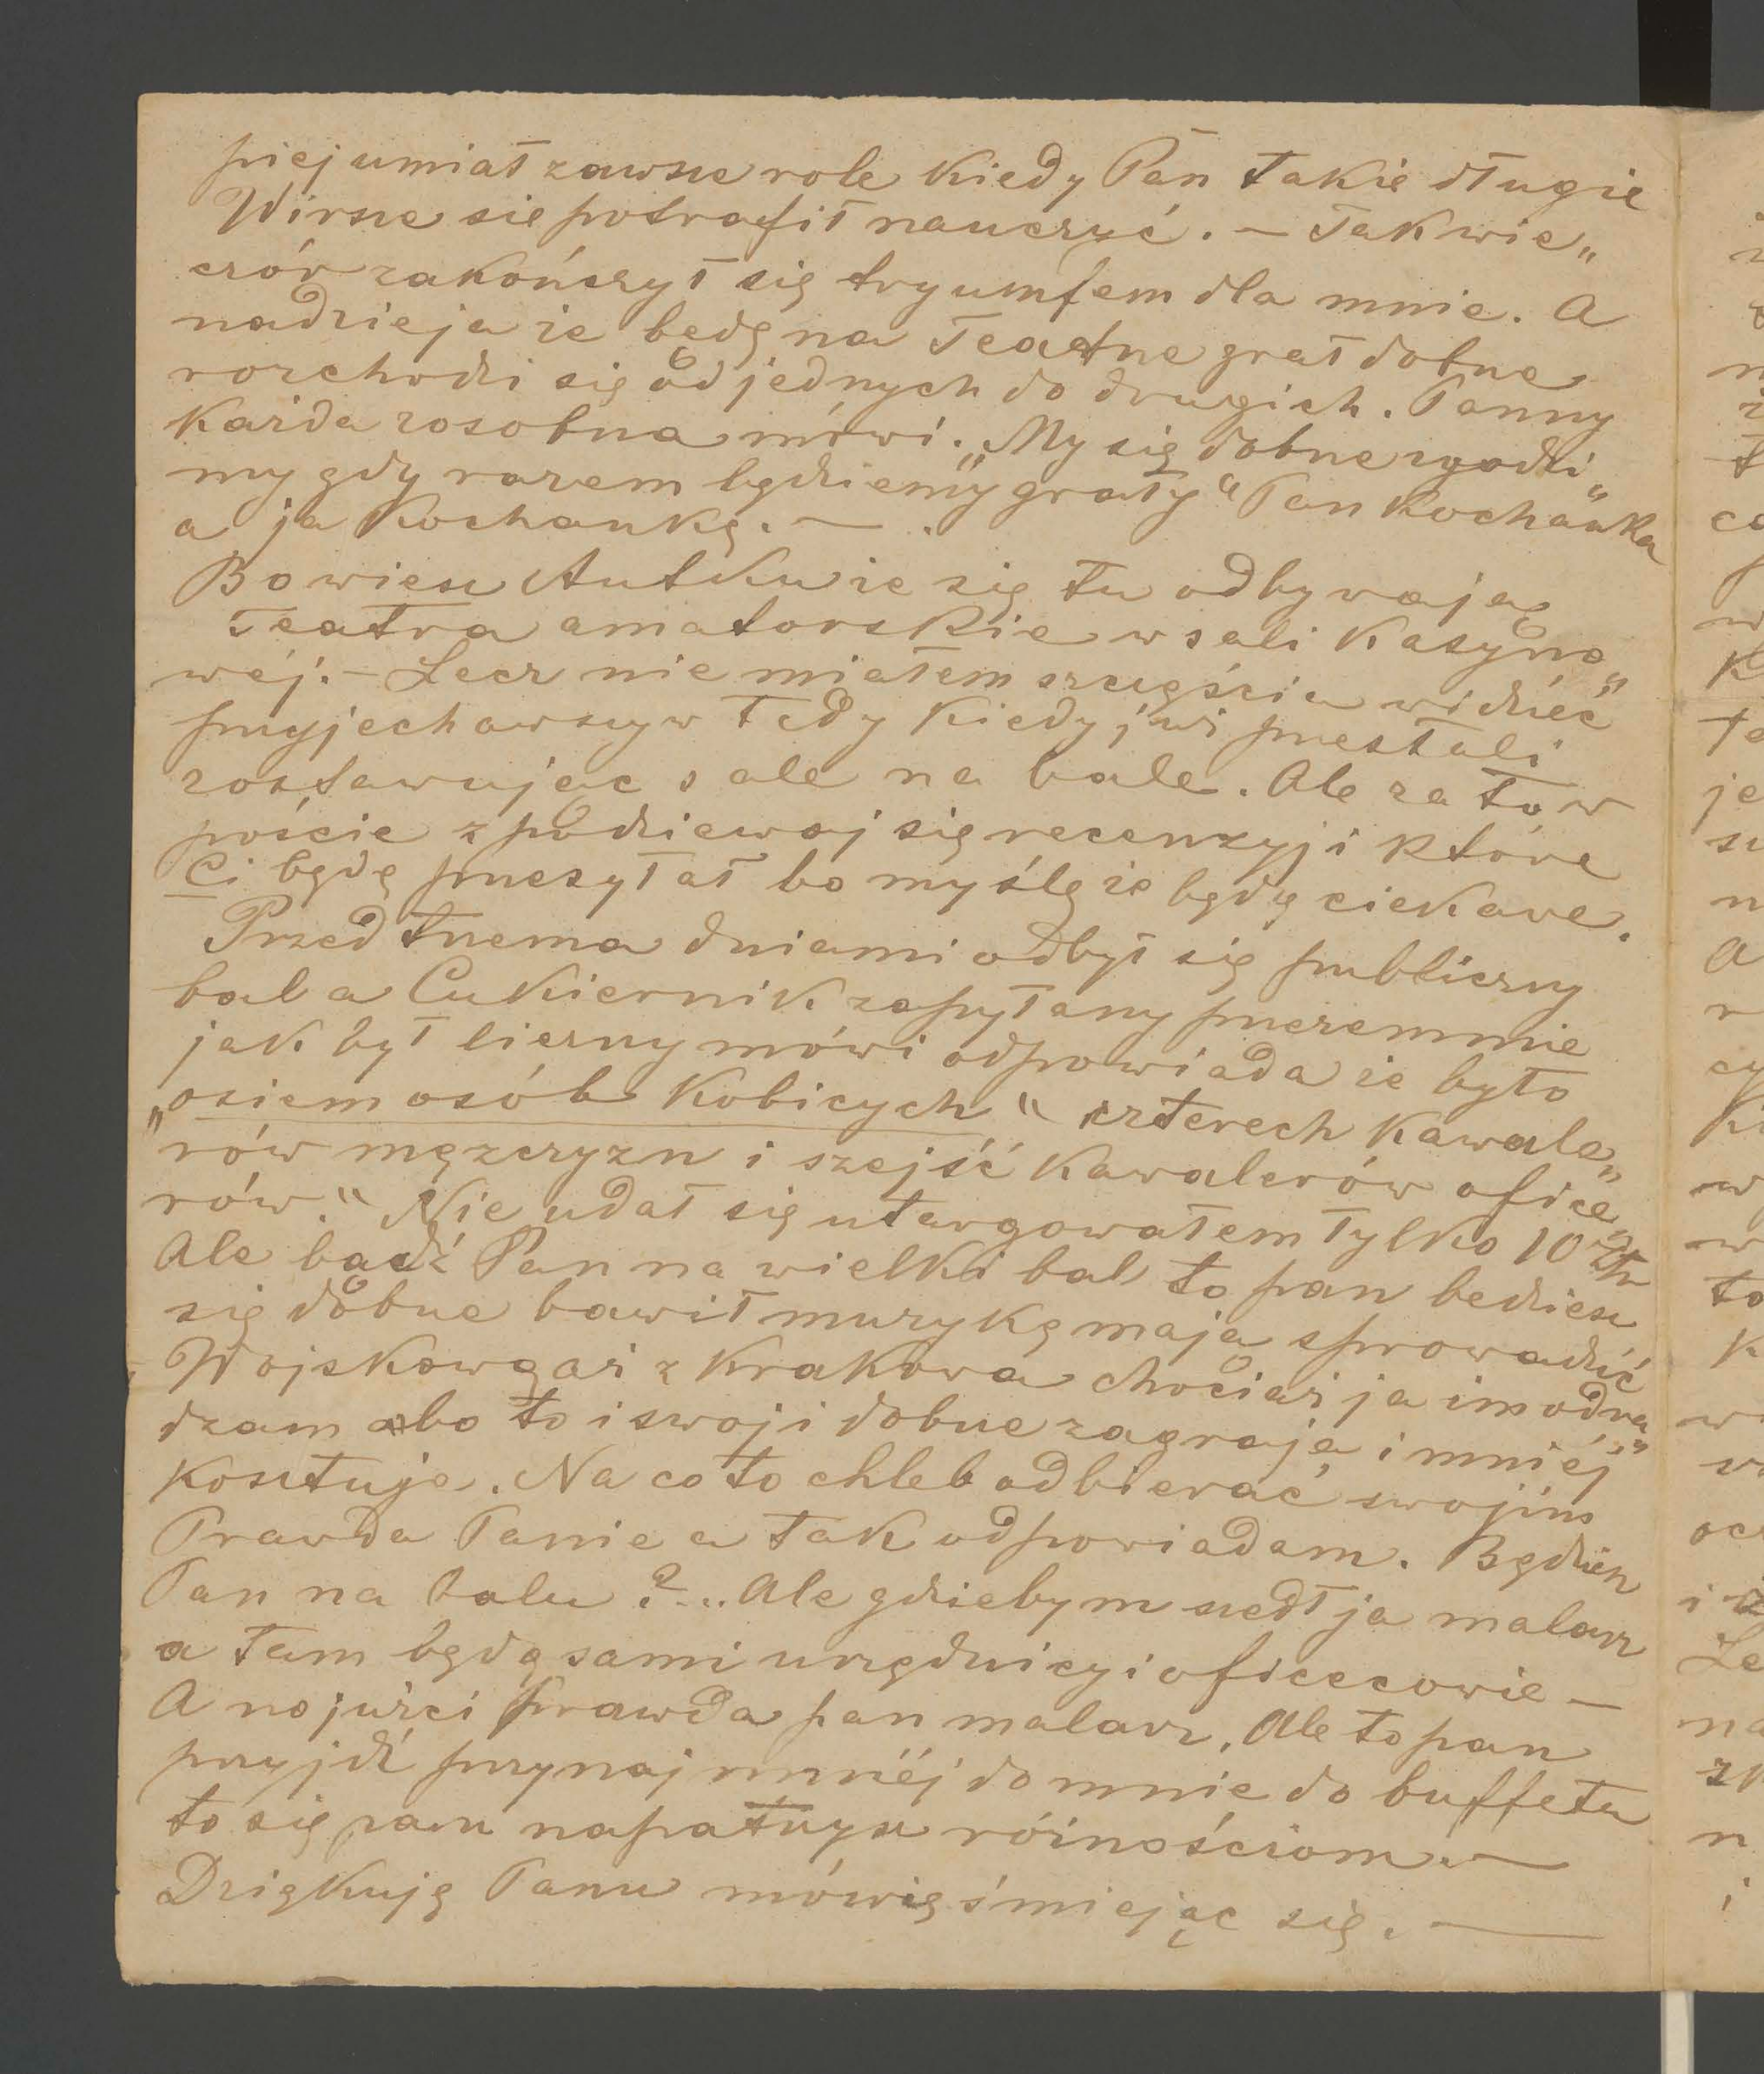 piej umiał zawsze role kiedy Pan takie długie
Wirsze sie potrafił nauczyć. – Tak wie„
czór zakończył się tryumfem dla mnie. A
nadzieja że będę na Teatrze grał dobrze
rozchodzi się od jednych do drugich. Panny
każda zosobna mówi. „My się dobrze zgodzi„
my gdy razem będziemy grały“ Pan kochanka
a ja kochankę. —
Bo wiesz Antku że się tu odbywają
Teatra amatorskie w sali kasyno„
wéj. – Lecz nie miałem szczęścia widzieć
przyjechawszy w tedy kiedy już przestali
zostawując sale na bale. Ale za to w
poście zpodziewaj się recenzyji które
Ci będę przesyłał bo myślę że będą ciekawe.
Przed trzema dniami odbył się publiczny
bal a Cukiernik zapytany przezemnie
jak był liczny mówi odpowiada że było
„osiem osób kobicych“ czterech kawale„
rów męzczyzn i szejść kawalerów ofice„
rów.“ Nie udał się utargowałem tylko 10 złr
Ale bądź Pan na wielki bal to pan bedziesz
się dobrze bawił muzykę mają sprowadzić
Wojskową aż z Krakowa chociaż ja im odra„
dzam bo to i swoji dobrze zagrają i mniéj
kosztuje. Na co to chleb odbierać swojim
Prawda Panie a tak odpowiadam. Będzież
Pan na balu?... Ale gdziebym szedł ja malarz
a tam będą sami urzędnicy i oficecowie —
A no juźci prawda pan malarz. Ale to pan
przyjdź przynajmniéj do mnie do buffetu
to się pan napatrzysz róźnościom. —
Dziękuję Panu mówię śmiejąc się. —